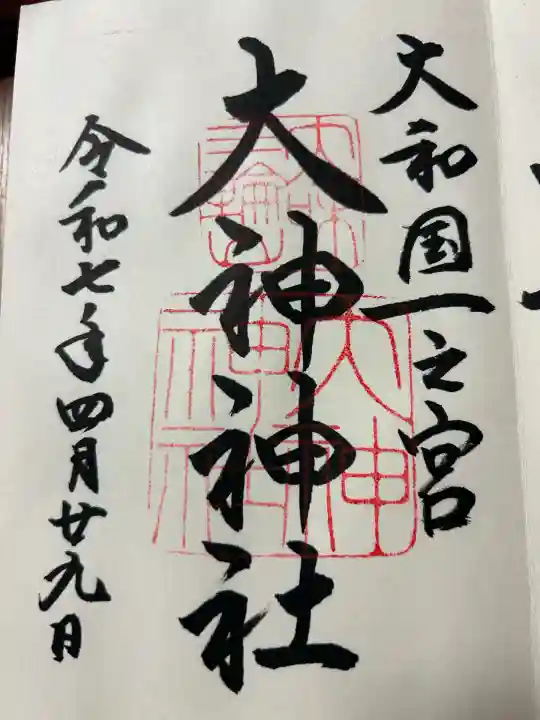 大和国一之宮
大神神社
令和七年四月廿九日
大神
神社